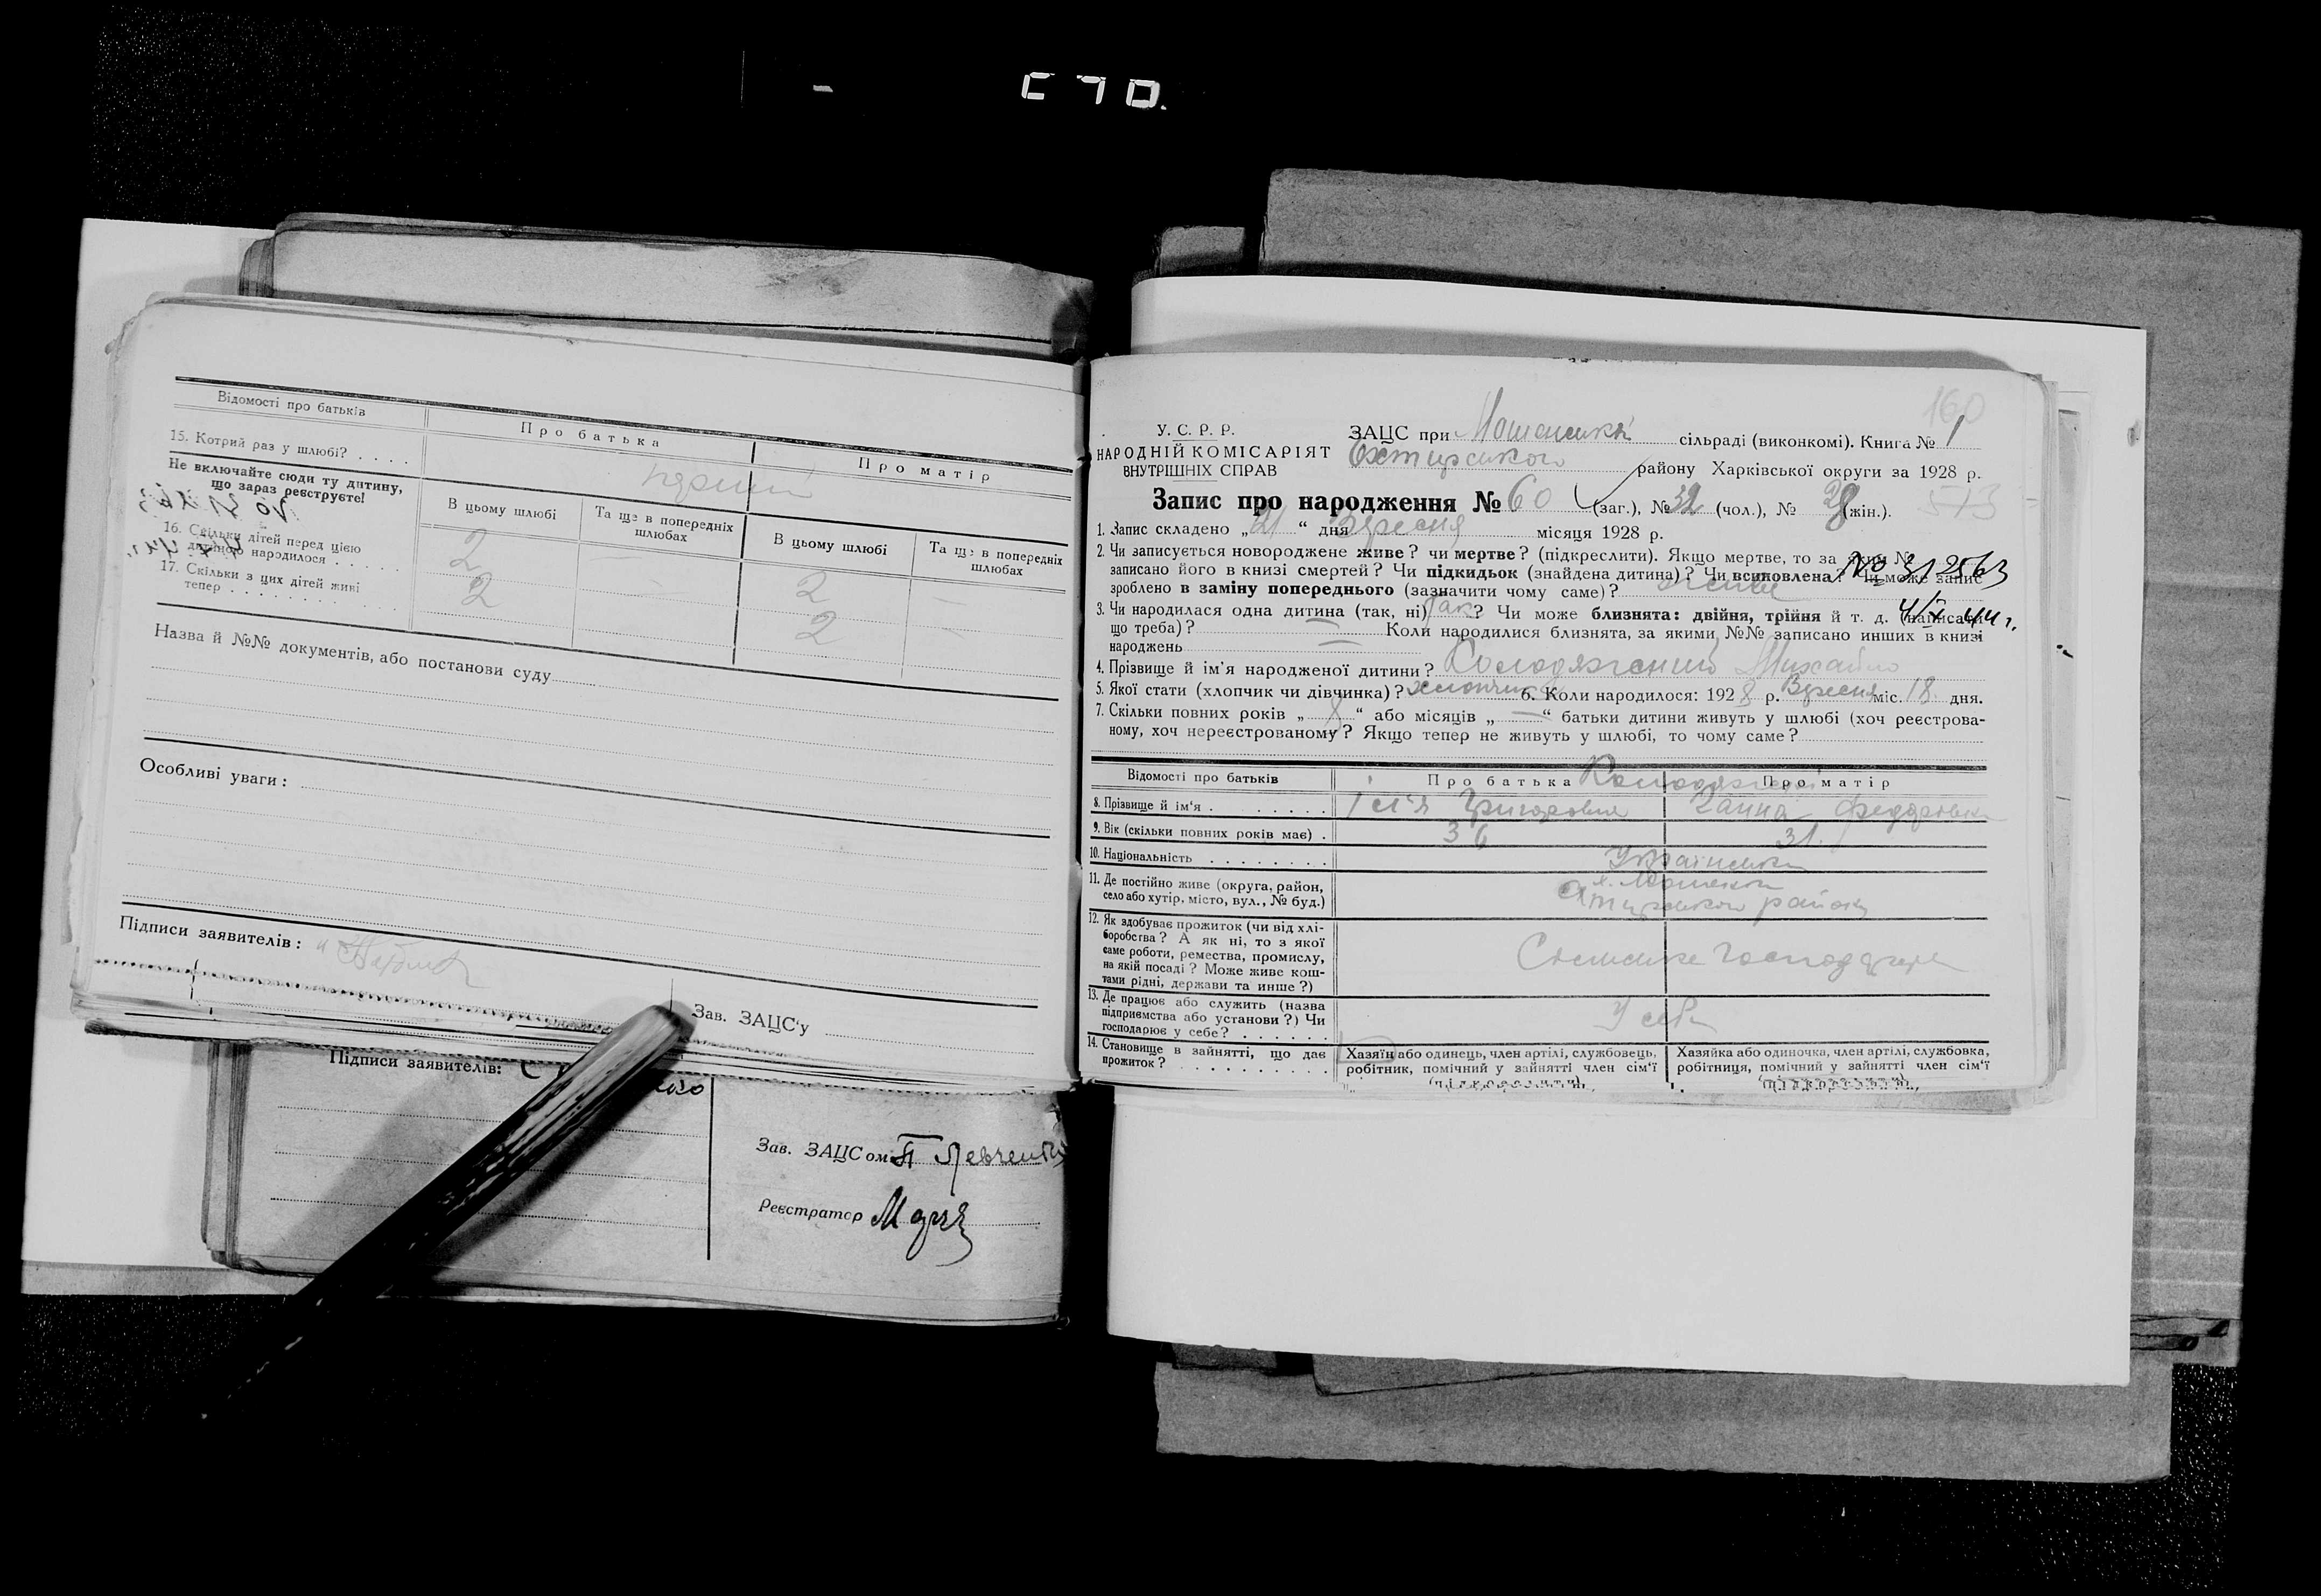 Відомості про батьків
Про батька
Про матір
15. Котрий раз у шлюбі? . . . .
перший
Не включайте сюди ту дитину,
що зараз реєструєте!
В цьому шлюбі
Та ще в попередніх
шлюбах
В цьому шлюбі
Та ще в попередніх
шлюбах
16. Скільки дітей перед цією
дитиною народилося . . . . .
2
2 —
17. Скільки з цих дітей живі
тепер . . . . . . . . . . .
2 —
2 —
Назва й №№ документів, або постанови суду
Особливі уваги:
Підписи заявителів:
Зав. ЗАЦС'у
Підписи заявителів:
Зав. ЗАЦСом П Левченко
Реєстратор
С 7 0.
160
У. С. Р. Р.
НАРОДНІЙ КОМІСАРІЯТ
ВНУТРІШНІХ СПРАВ
ЗАЦС при сільраді (виконкомі). Книга № 1
Охтирського району Харківської округи за 1928 р.
Запис про народження № 60 (заг.), № 32 (чол.), № 28 (жін.).
573
1. Запис складено „21“ дня Вересня місяця 1928 р.
2. Чи записується новороджене живе? чи мертве? (підкреслити). Якщо мертве, то за яким №
записано його в книзі смертей? Чи підкидьок (знайдена дитина)? Чи всиновлена? Чи може запис
№ 312563
зроблено в заміну попереднього (зазначити чому саме)? живе
3. Чи народилася одна дитина (так, ні) Так? Чи може близнята: двійня, трійня й т. д. (написати
4/IX 44 г.
що треба)? — Коли народилися близнята, за якими №№ записано инших в книзі
народжень —
4. Прізвище й ім'я народженої дитини? Колодяжний Михайло
5. Якої стати (хлопчик чи дівчинка)? хлопчик 6. Коли народилося: 1928 р. Вересня міс. 18 дня.
7. Скільки повних років „8“ або місяців „—“ батьки дитини живуть у шлюбі (хоч реєстрова-
ному, хоч нереєстрованому? Якщо тепер не живуть у шлюбі, то чому саме?
Відомості про батьків
Про батька
Про матір
Колодяжні
8. Прізвище й ім'я . . . . . . . . .
Ілля Григорович
Ганна Федоровна
9. Вік (скільки повних років має) .
36
31.
10. Національність . . . . . . . .
Українська
11. Де постійно живе (округа, район,
село або хутір, місто, вул., № буд.)
Охтирського району
12. Як здобуває прожиток (чи від хлі-
боробства? А як ні, то з якої
саме роботи, ремества, промислу,
на якій посаді? Може живе кош-
тами рідні, держави та инше?)
Сільське господарство
13. Де працює або служить (назва
підприємства або установи?) Чи
господарює у себе? . . . . . .
У себе
14. Становище в зайнятті, що дає
прожиток? . . . . . . . . . .
Хазяїн або одинець, член артілі, службовець,
робітник, помічний у зайнятті член сім'ї
(підкреслити).
Хазяйка або одиночка, член артілі, службовка,
робітниця, помічний у зайнятті член сім'ї
(підкреслити).